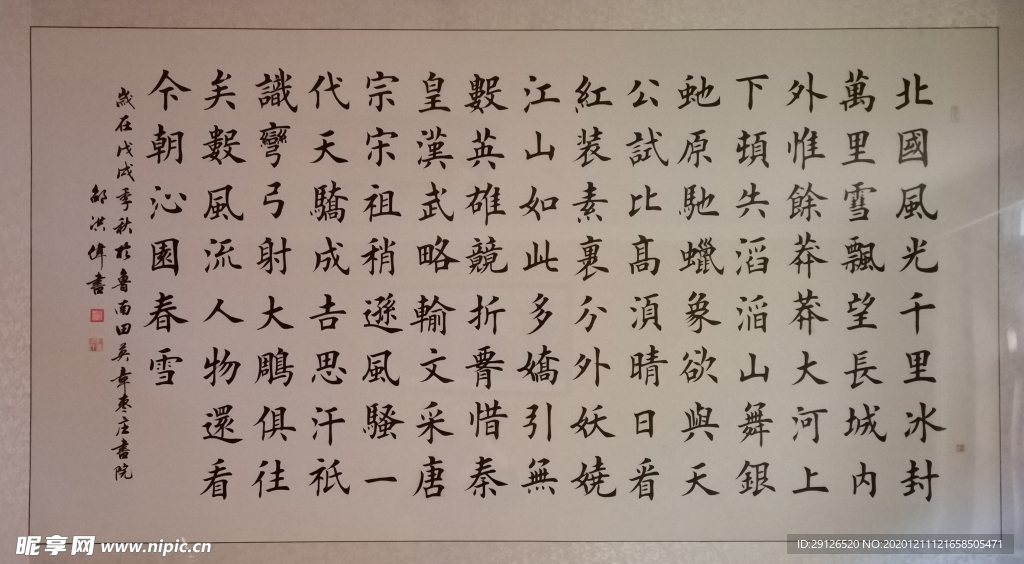 北國風光千里冰封
萬里雪飄望長城內
外惟餘莽莽大河上
下頓失滔滔山舞銀
虵原馳蠟象欲與天
公試比高須晴日看
紅裝素裹分外妖嬈
江山如此多嬌引無
數英雄競折腰惜秦
皇漢武略輸文采唐
宗宋祖稍遜風騷一
代天驕成吉思汗祇
識彎弓射大鵰俱往
矣數風流人物還看
今朝沁園春雪
歲在戊戌季秋於魯南田英章枣庄書院
邵洪偉書
昵享网 www.nipic.cn
ID:29126520 NO:20201211121658505471